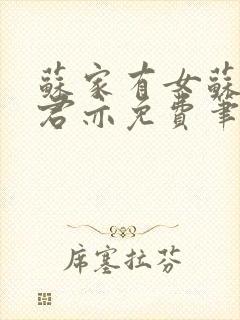 蘇家有女蘇
君亦免費筆
席塞拉芬